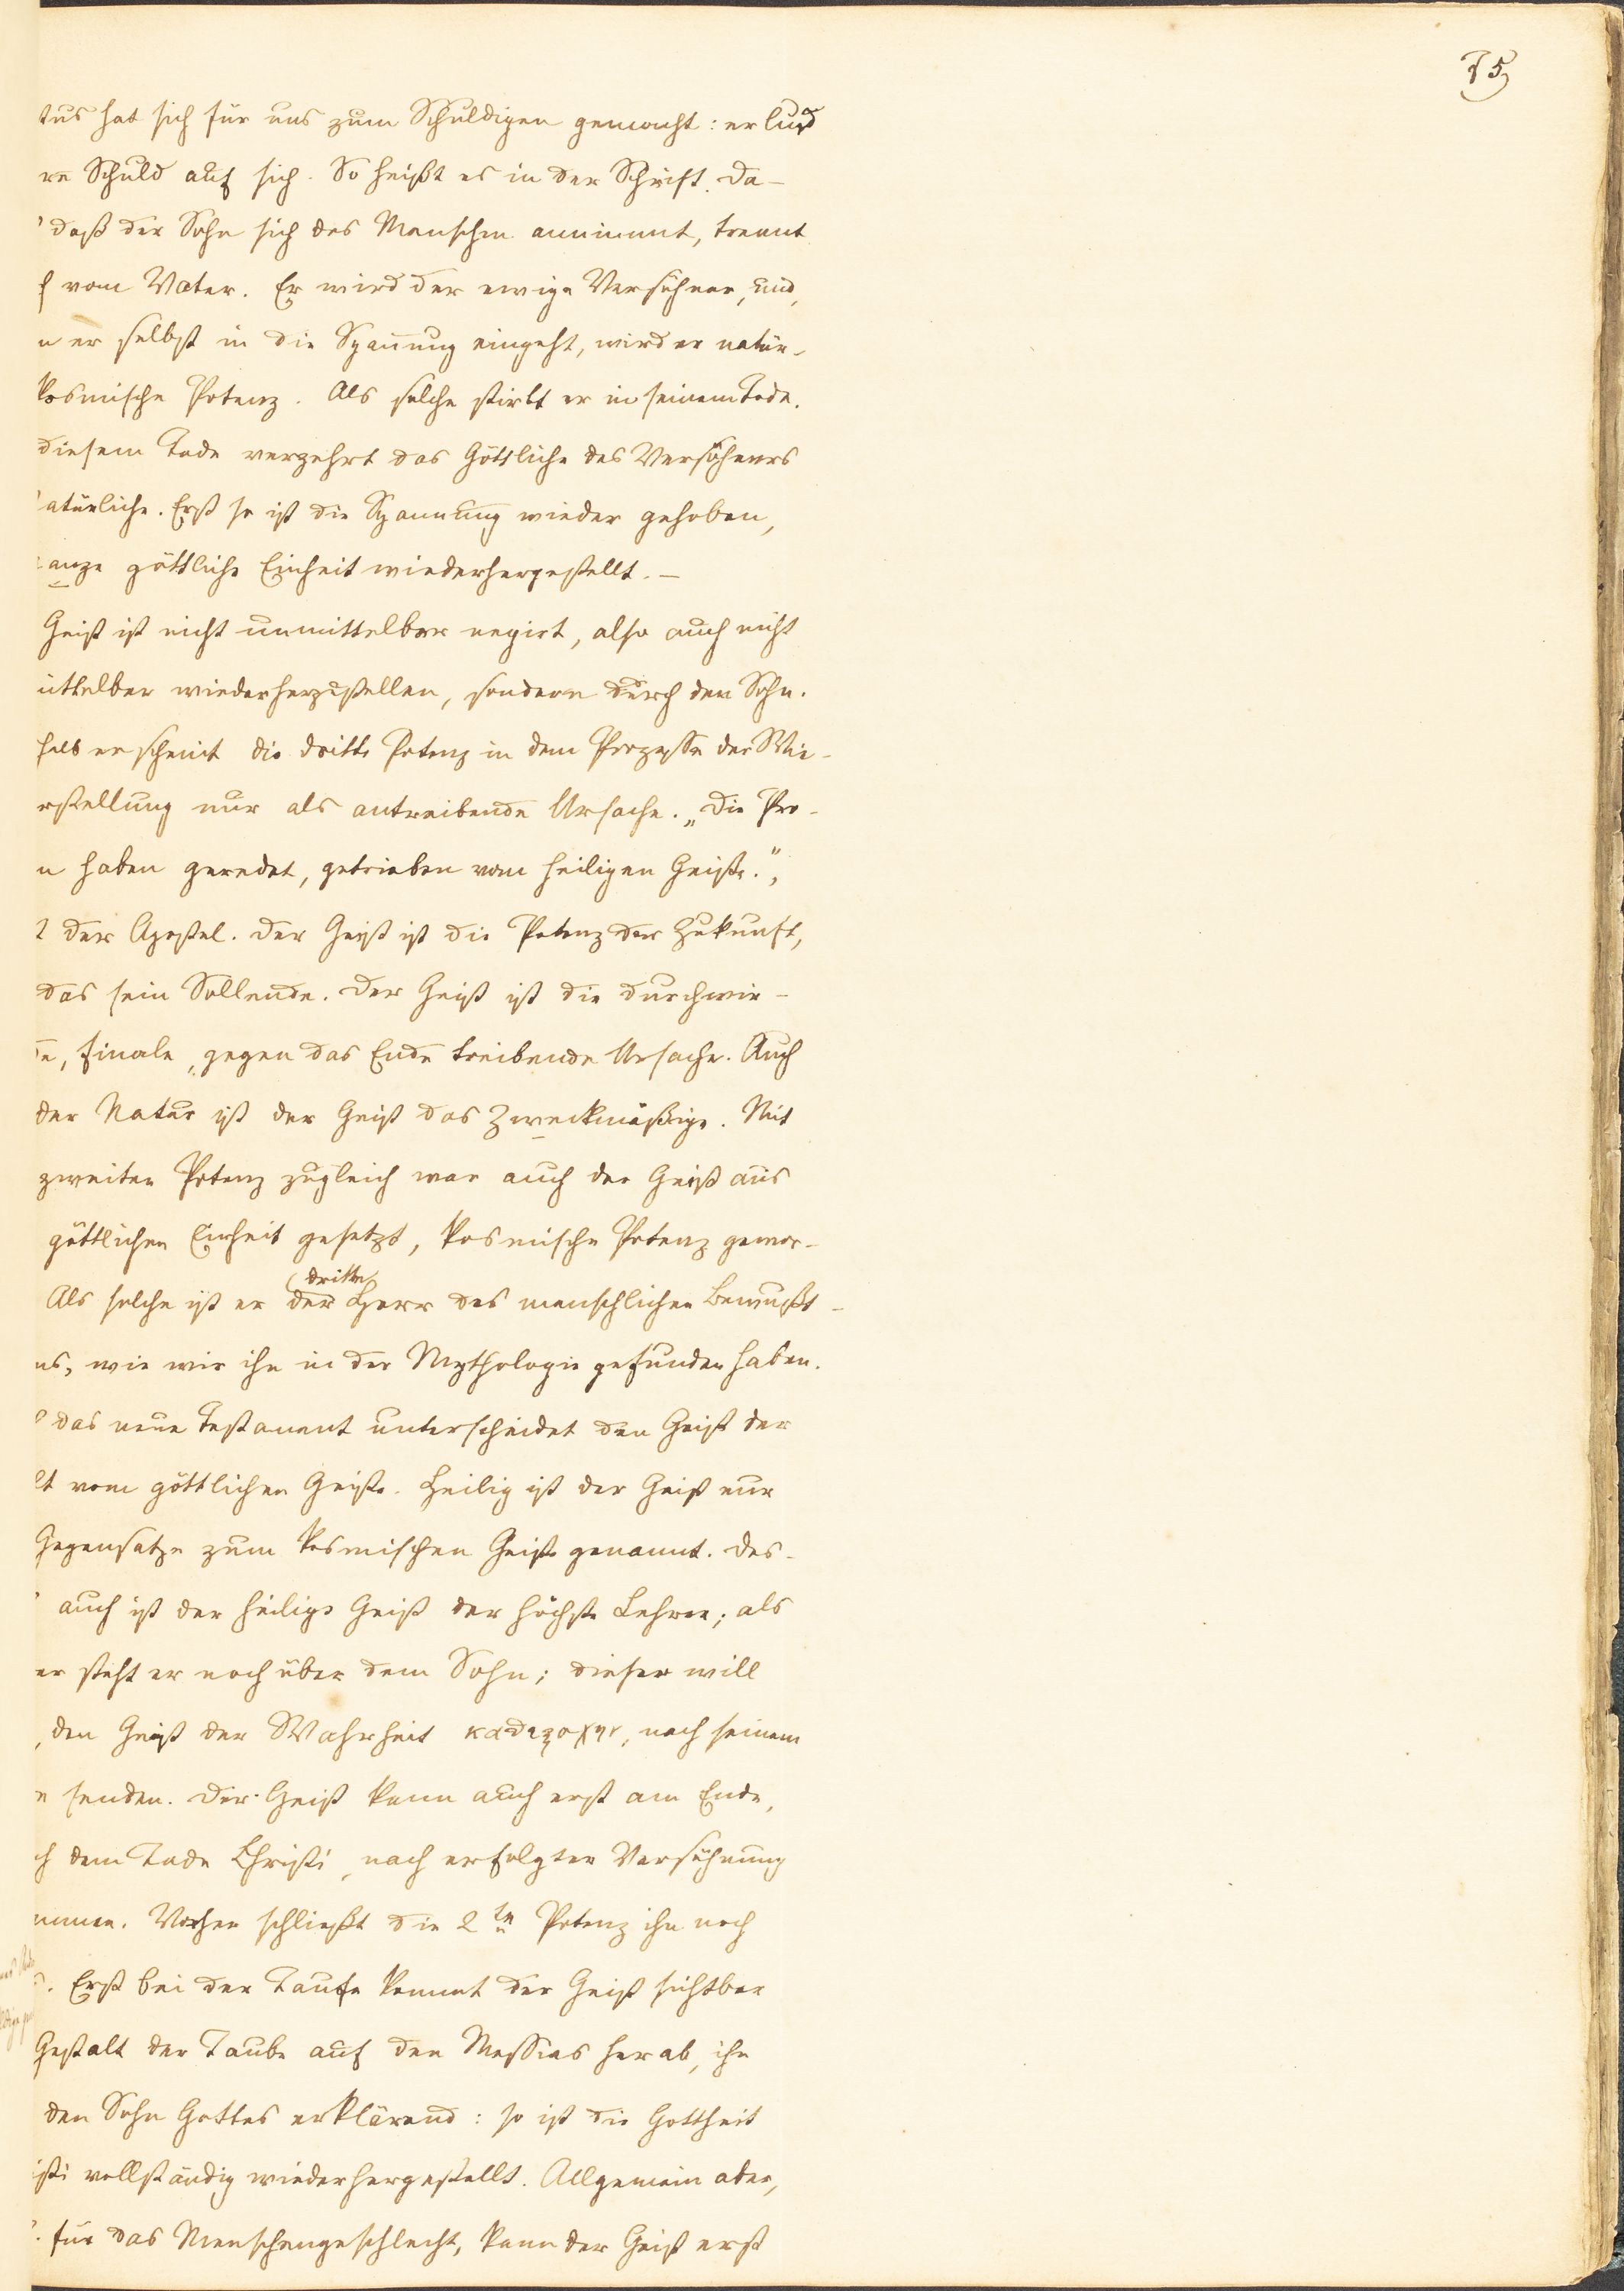 75
tus hat sich für uns zum Schuldigen gemacht: er lud
re Schuld auf sich. So heißt es in der Schrift. Da-
daß der Sohn sich des Menschen annimmt, trennt
h vom Vater. Er wird der ewige Versöhner, und,
n er selbst in die Spannung eingeht, wird er natür-
kosmische Potenz. Als solche stirbt er in seinem Tode.
diesem Tode verzehrt das Göttliche des Versöhners
atürliche. Erst so ist die Spannung wieder gehoben,
anze göttliche Einheit wiederhergestellt. —
Geist ist nicht unmittelbar negirt, also auch nicht
ittelbar wiederherzustellen, sondern durch den Sohn.
halb erscheint die dritte Potenz in dem Prozesse der Wie-
rstellung nur als antreibende Ursache. „Die Pro-
n haben geredet, getrieben vom heiligen Geiste.",
t der Apostel. Der Geist ist die Potenz der Zukunft,
das sein Sollende. Der Geist ist die durchwir-
e, finale, gegen das Ende treibende Ursache. Auch
der Natur ist der Geist das Zweckmäßige. Mit
zweiten Potenz zugleich war auch der Geist aus
göttlichen Einheit gesetzt, kosmische Potenz gewor-
Als solche ist er der (dritte) Herr des menschlichen Bewußt-
ns, wie wir ihn in der Mythologie gefunden haben.
das neue Testament unterscheidet den Geist der
lt vom göttlichen Geiste. Heilig ist der Geist nur
Gegensatze zum kosmischen Geiste genannt. Des-
auch ist der heilige Geist der höchste Lehrer; als
er steht er noch über dem Sohn; dieser will
, den Geist der Wahrheit καθεξοχην, nach seinem
e senden. Der Geist kann auch erst am Ende,
h dem Tode Christi, nach erfolgter Versöhnung
mmen. Vorher schließt die 2te Potenz ihn noch
. Erst bei der Taufe kommt der Geist sichtbar
Gestalt der Taube auf den Messias herab, ihn
den Sohn Gottes erklärend: so ist die Gottheit
isti vollständig wiederhergestellt. Allgemein aber,
. für das Menschengeschlecht, kann der Geist erst